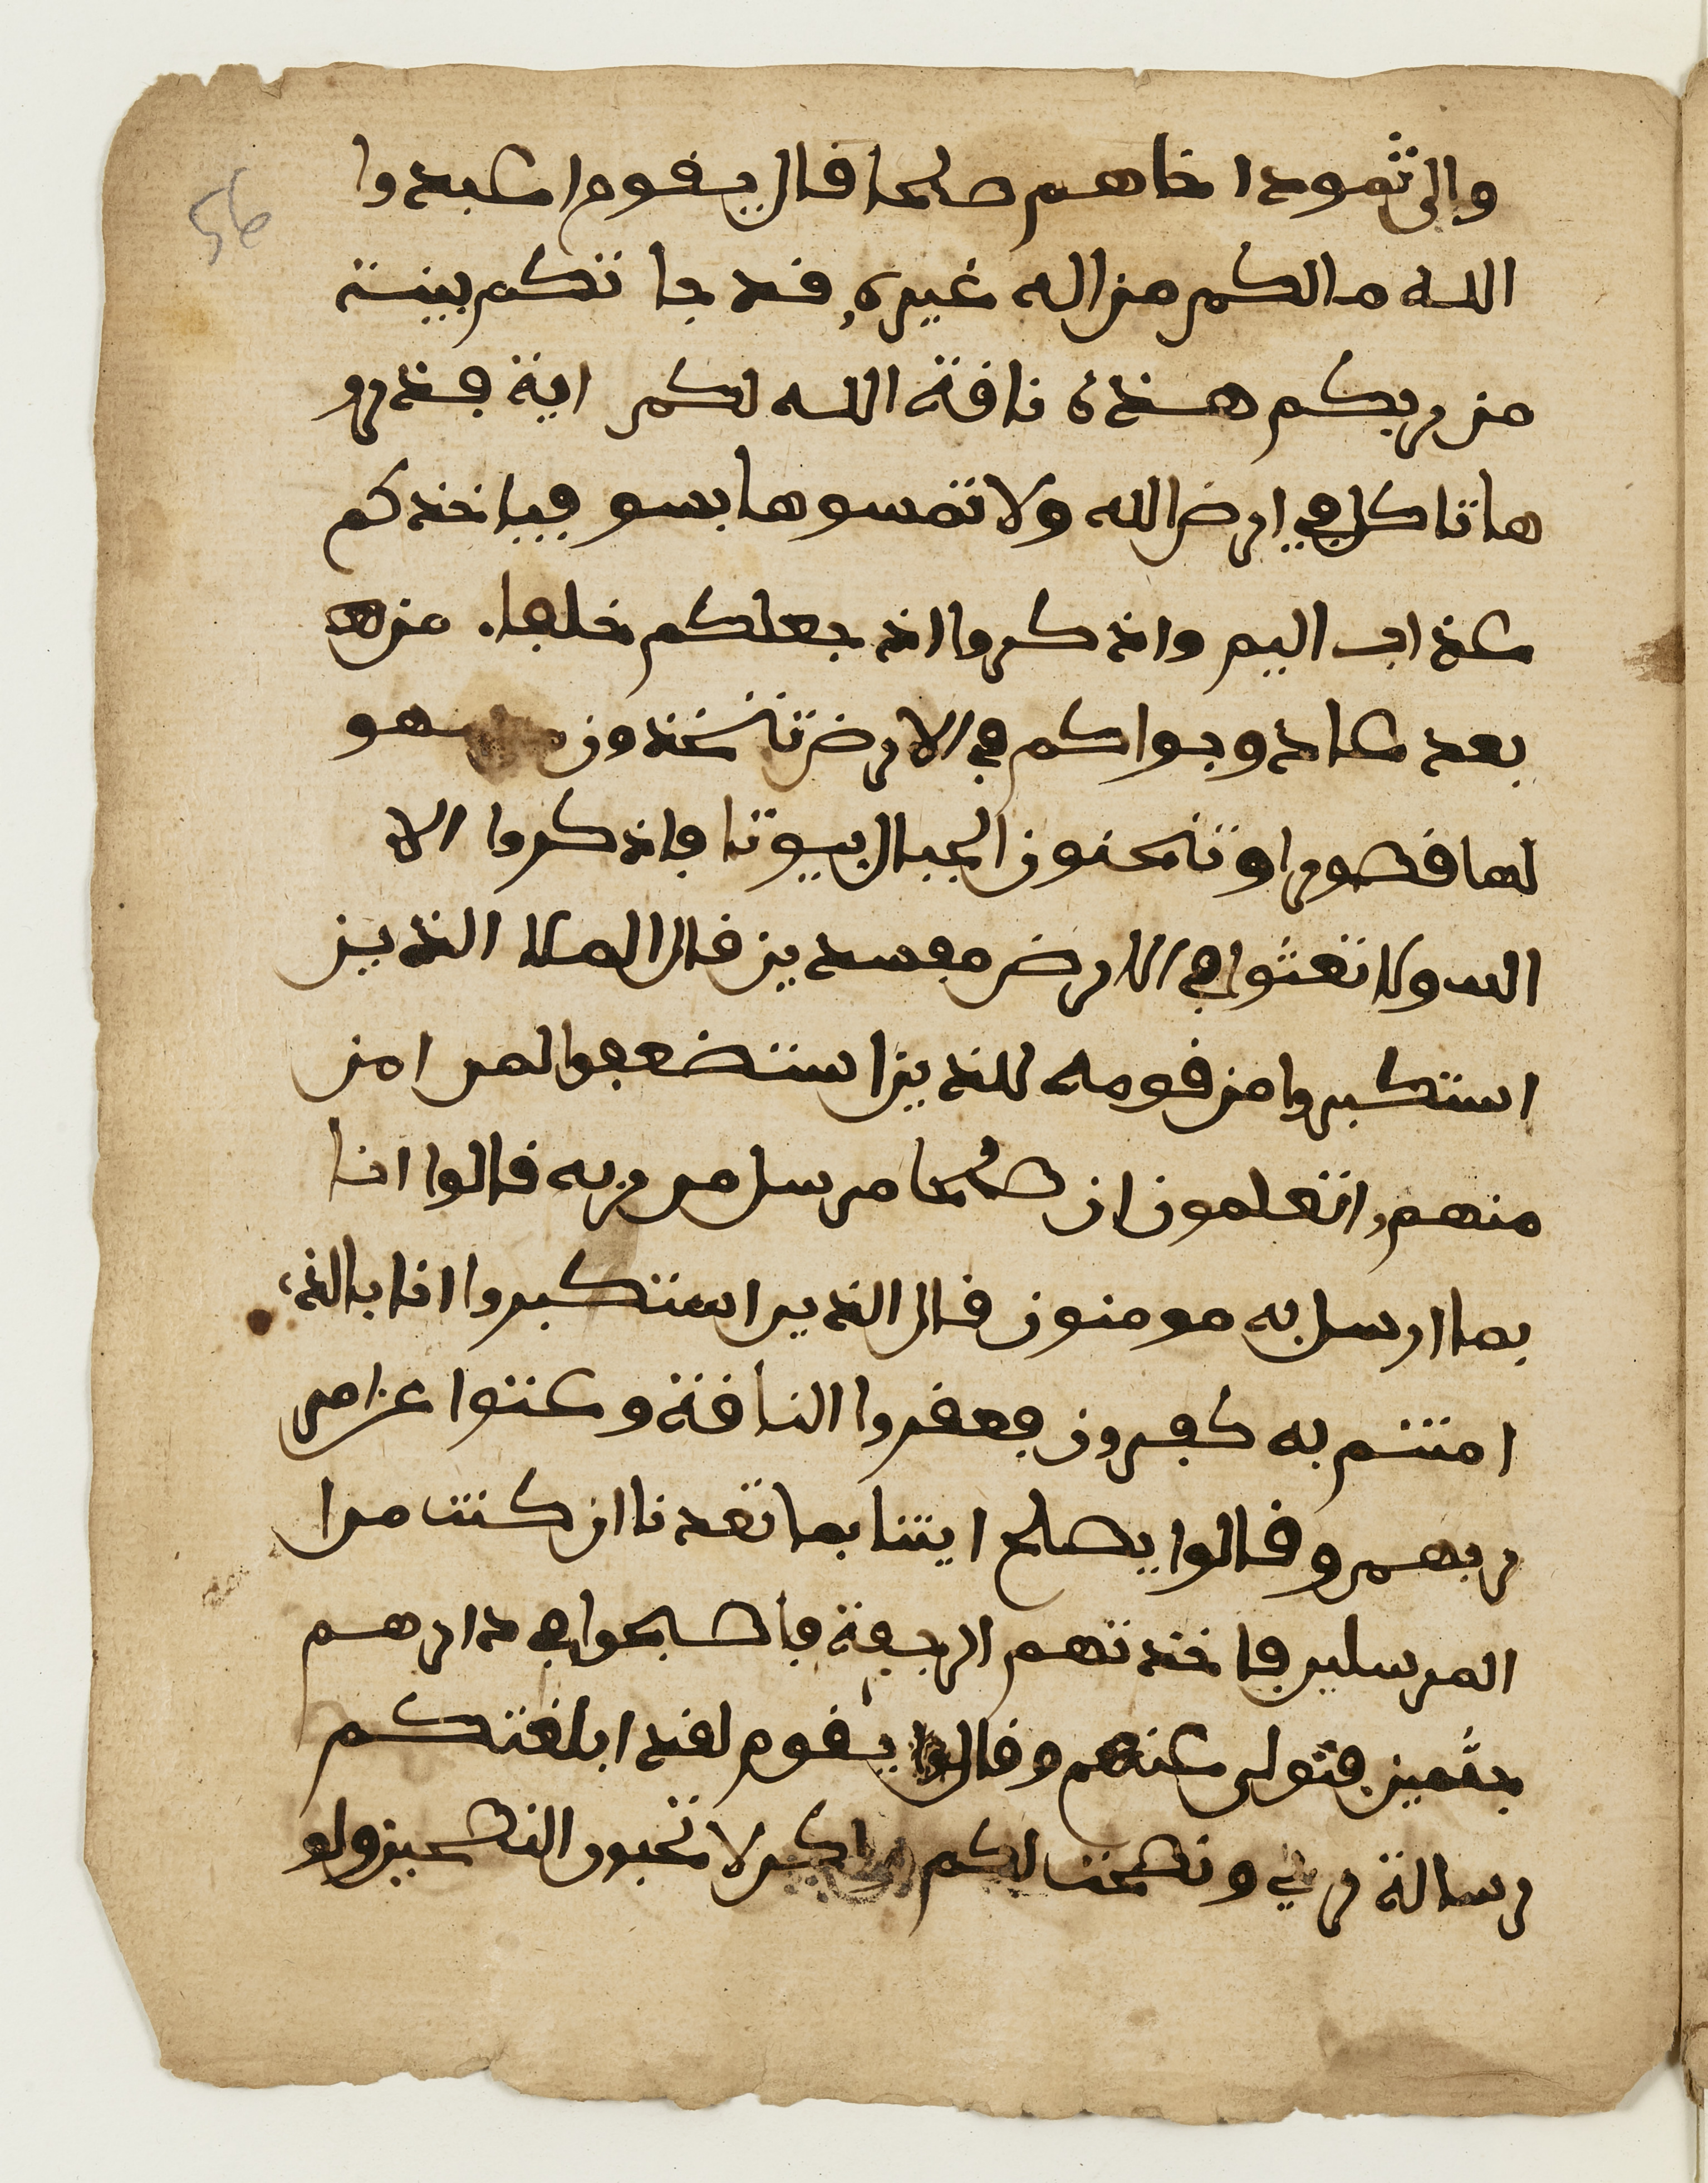 56
والى ثمود اخاهم صلحا قال يقوم اعبدوا
الله مالكم من اله غيره قد جا تكم بينة
من ربكم هذه ناقة الله لكم اية فذرو
ها تاكل في ارض الله ولا تمسوها بسو فياخذكم
عذاب اليم واذكروا اذ جعلكم خلفا من
بعد عاد وبواكم في الارض تتخذون سهو
لها قصورا وتنحتون الجبال بيوتا فاذكروا الا
الله ولا تعثوا في الارض مفسدين قال الملا الذين
استكبروا من قومه للذين استضعفوا لمن امن
منهم اتعلمون ان صلحا مرسل من ربه قالوا انا
بما ارسل به مومنون قال الذين استكبروا انا بالذ
امنتم به كفرون فعقروا الناقة وعتوا عن امر
ربهم وقالوا يصلح ايتنا بما تعدنا ان كنت من ا
المرسلين فاخذتهم الرجفة فاصبحوا في دارهم
جثمين فتولى عنهم وقال يقوم لقد ابلغتكم
رسالة ربي ونصحت لكم ولكن لا تحبون النصحين ولو